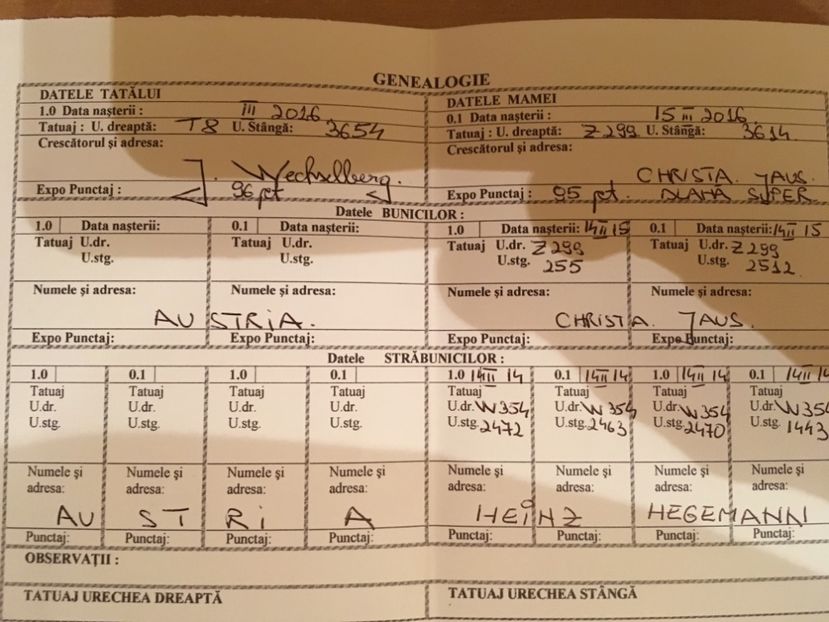 GENEALOGIE
DATELE TATĂLUI
1.0 Data nașterii : III 2016
Tatuaj : U. dreaptă: T8 U. Stângă: 3654
Crescătorul și adresa:
J. Wechselberg.
Expo Punctaj : 96 pct
DATELE MAMEI
0.1 Data nașterii : 15 III 2016.
Tatuaj : U. dreaptă: Z 299 U. Stângă: 3614.
Crescătorul și adresa:
CHRISTA JAUS.
Expo Punctaj : 95 pct. BLAHA SUPER
Datele BUNICILOR :
1.0 Data nașterii: 0.1 Data nașterii: 1.0 Data nașterii: 14 II 15 0.1 Data nașterii: 14 II 15
Tatuaj U.dr. Tatuaj U.dr. Tatuaj U.dr. Z 299 Tatuaj U.dr. Z 299
U.stg. U.stg. U.stg. 255 U.stg. 2512.
Numele și adresa: Numele și adresa: Numele și adresa: Numele și adresa:
AUSTRIA. CHRISTA JAUS.
Expo Punctaj: Expo Punctaj: Expo Punctaj: Expo Punctaj:
Datele STRĂBUNICILOR :
1.0 0.1 1.0 0.1 1.0 14 II 14 0.1 14 II 14 1.0 14 II 14 0.1 14 II 14
Tatuaj Tatuaj Tatuaj Tatuaj Tatuaj Tatuaj Tatuaj Tatuaj
U.dr. U.dr. U.dr. U.dr. U.dr. W 354 U.dr. W 354 U.dr. W 354 U.dr. W 354
U.stg. U.stg. U.stg. U.stg. U.stg. 2472 U.stg. 2463 U.stg. 2470 U.stg. 1443
Numele și Numele și Numele și Numele și Numele și Numele și Numele și Numele și
adresa: adresa: adresa: adresa: adresa: adresa: adresa: adresa:
AU ST RI A HEINZ HEGEMANN
Punctaj: Punctaj: Punctaj: Punctaj: Punctaj: Punctaj: Punctaj: Punctaj:
OBSERVAȚII :
TATUAJ URECHEA DREAPTĂ TATUAJ URECHEA STÂNGĂ